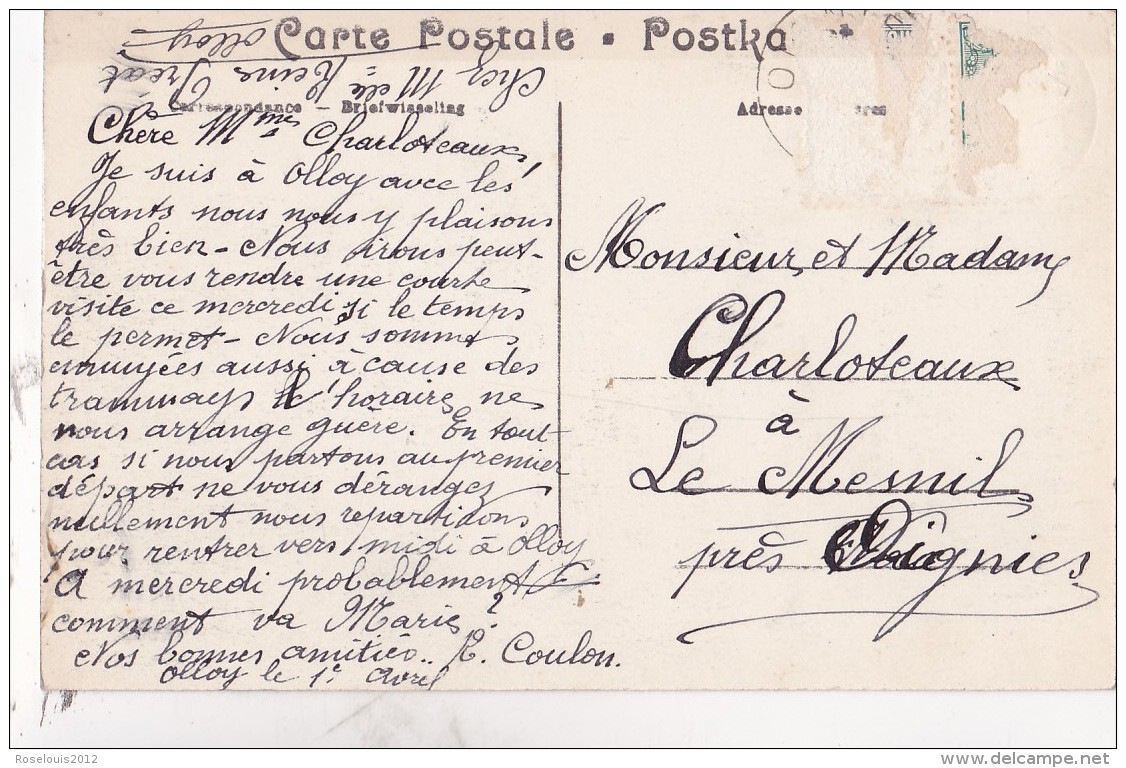 Carte Postale • Postkaart
chez Melle Reine Préat
Olloy
Correspondance — Briefwisseling
Adresse
Chère Mme Charloteaux,
Je suis à Olloy avec les
enfants nous nous y plaisons
très bien – Nous irons peut-
être vous rendre une courte
visite ce mercredi, si le temps
le permet – Nous sommes
ennuyées aussi à cause des
tramways l'horaire ne
nous arrange guère. En tout
cas si nous partons au premier
départ ne vous dérangez
nullement nous repartirons
pour rentrer vers midi à Olloy
A mercredi probablement
comment va Marie ?
Nos bonnes amitiés.. R. Coulon.
Olloy le 1r avril
Monsieur et Madame
Charloteaux
à
Le Mesnil
près Oignies
Roselouis2012
delcampe.net